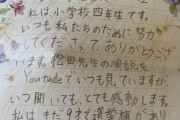 私は、小学校四年生です。
いつも私たちのために努力
してくださって、ありがとうござ
います。松田先生の演説を
Youtubeでいつも見ていますが、
いつ聞いても、とても感動します。
私はまだ9才で選挙権があり